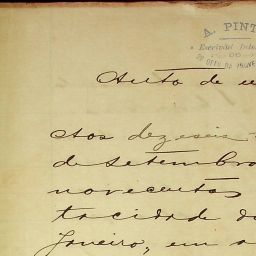 A. PINT
Escrivão
Auto de
Aos dezeseis
de Setembro
novecentos
ta cidade do
Janeiro, em a